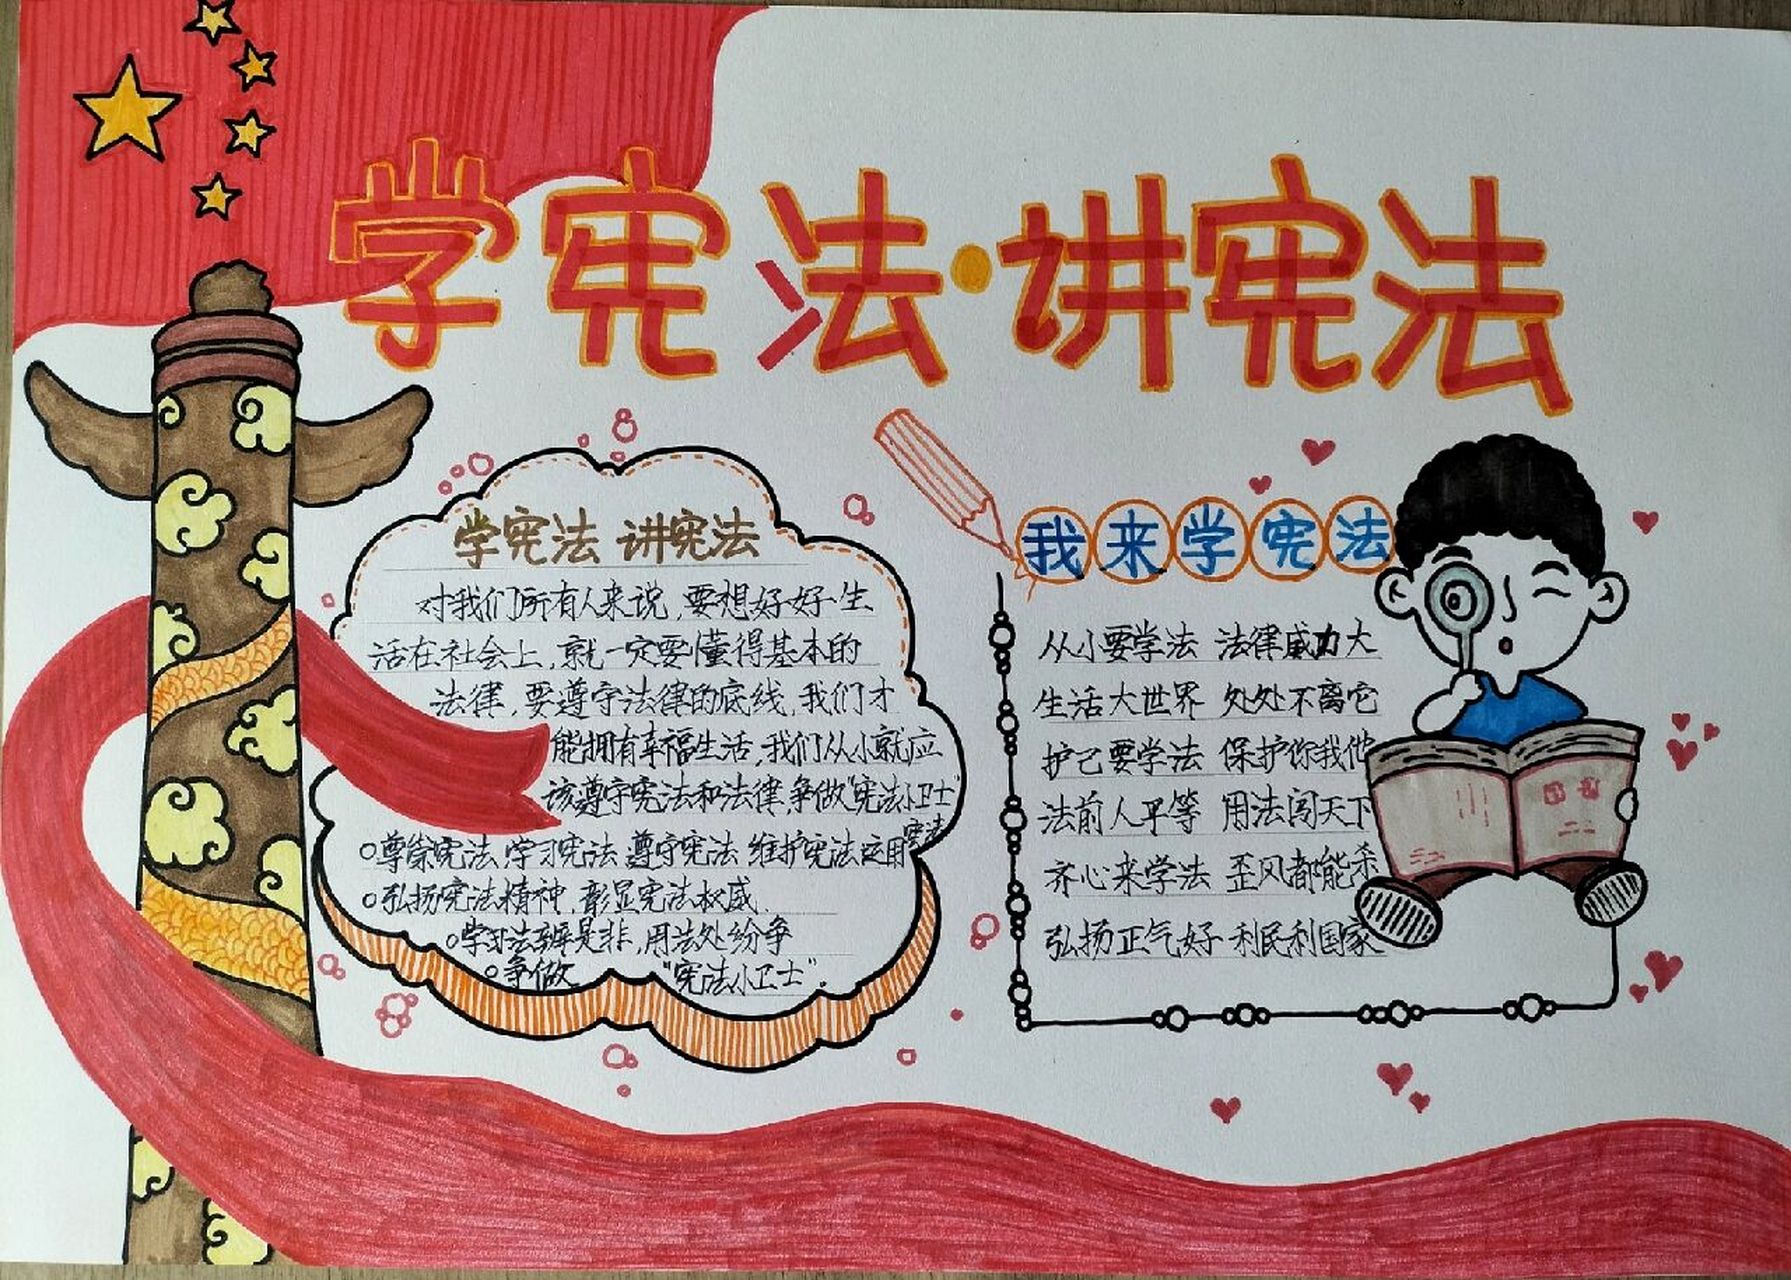 学宪法·讲宪法
学宪法 讲宪法
对我们所有人来说，要想好好生
活在社会上，就一定要懂得基本的
法律，要遵守法律的底线，我们才
能拥有幸福生活，我们从小就应
该遵守宪法和法律，争做“宪法小卫士”
尊崇宪法 学习宪法 遵守宪法 维护宪法 运用宪法
弘扬宪法精神，彰显宪法权威．
学习法辨是非，用法处纷争
争做 “宪法小卫士”．
我来学宪法
从小要学法 法律威力大
生活大世界 处处不离它
护己要学法 保护你我他
法前人平等 用法闯天下
齐心来学法 歪风都能杀
弘扬正气好 利民利国家